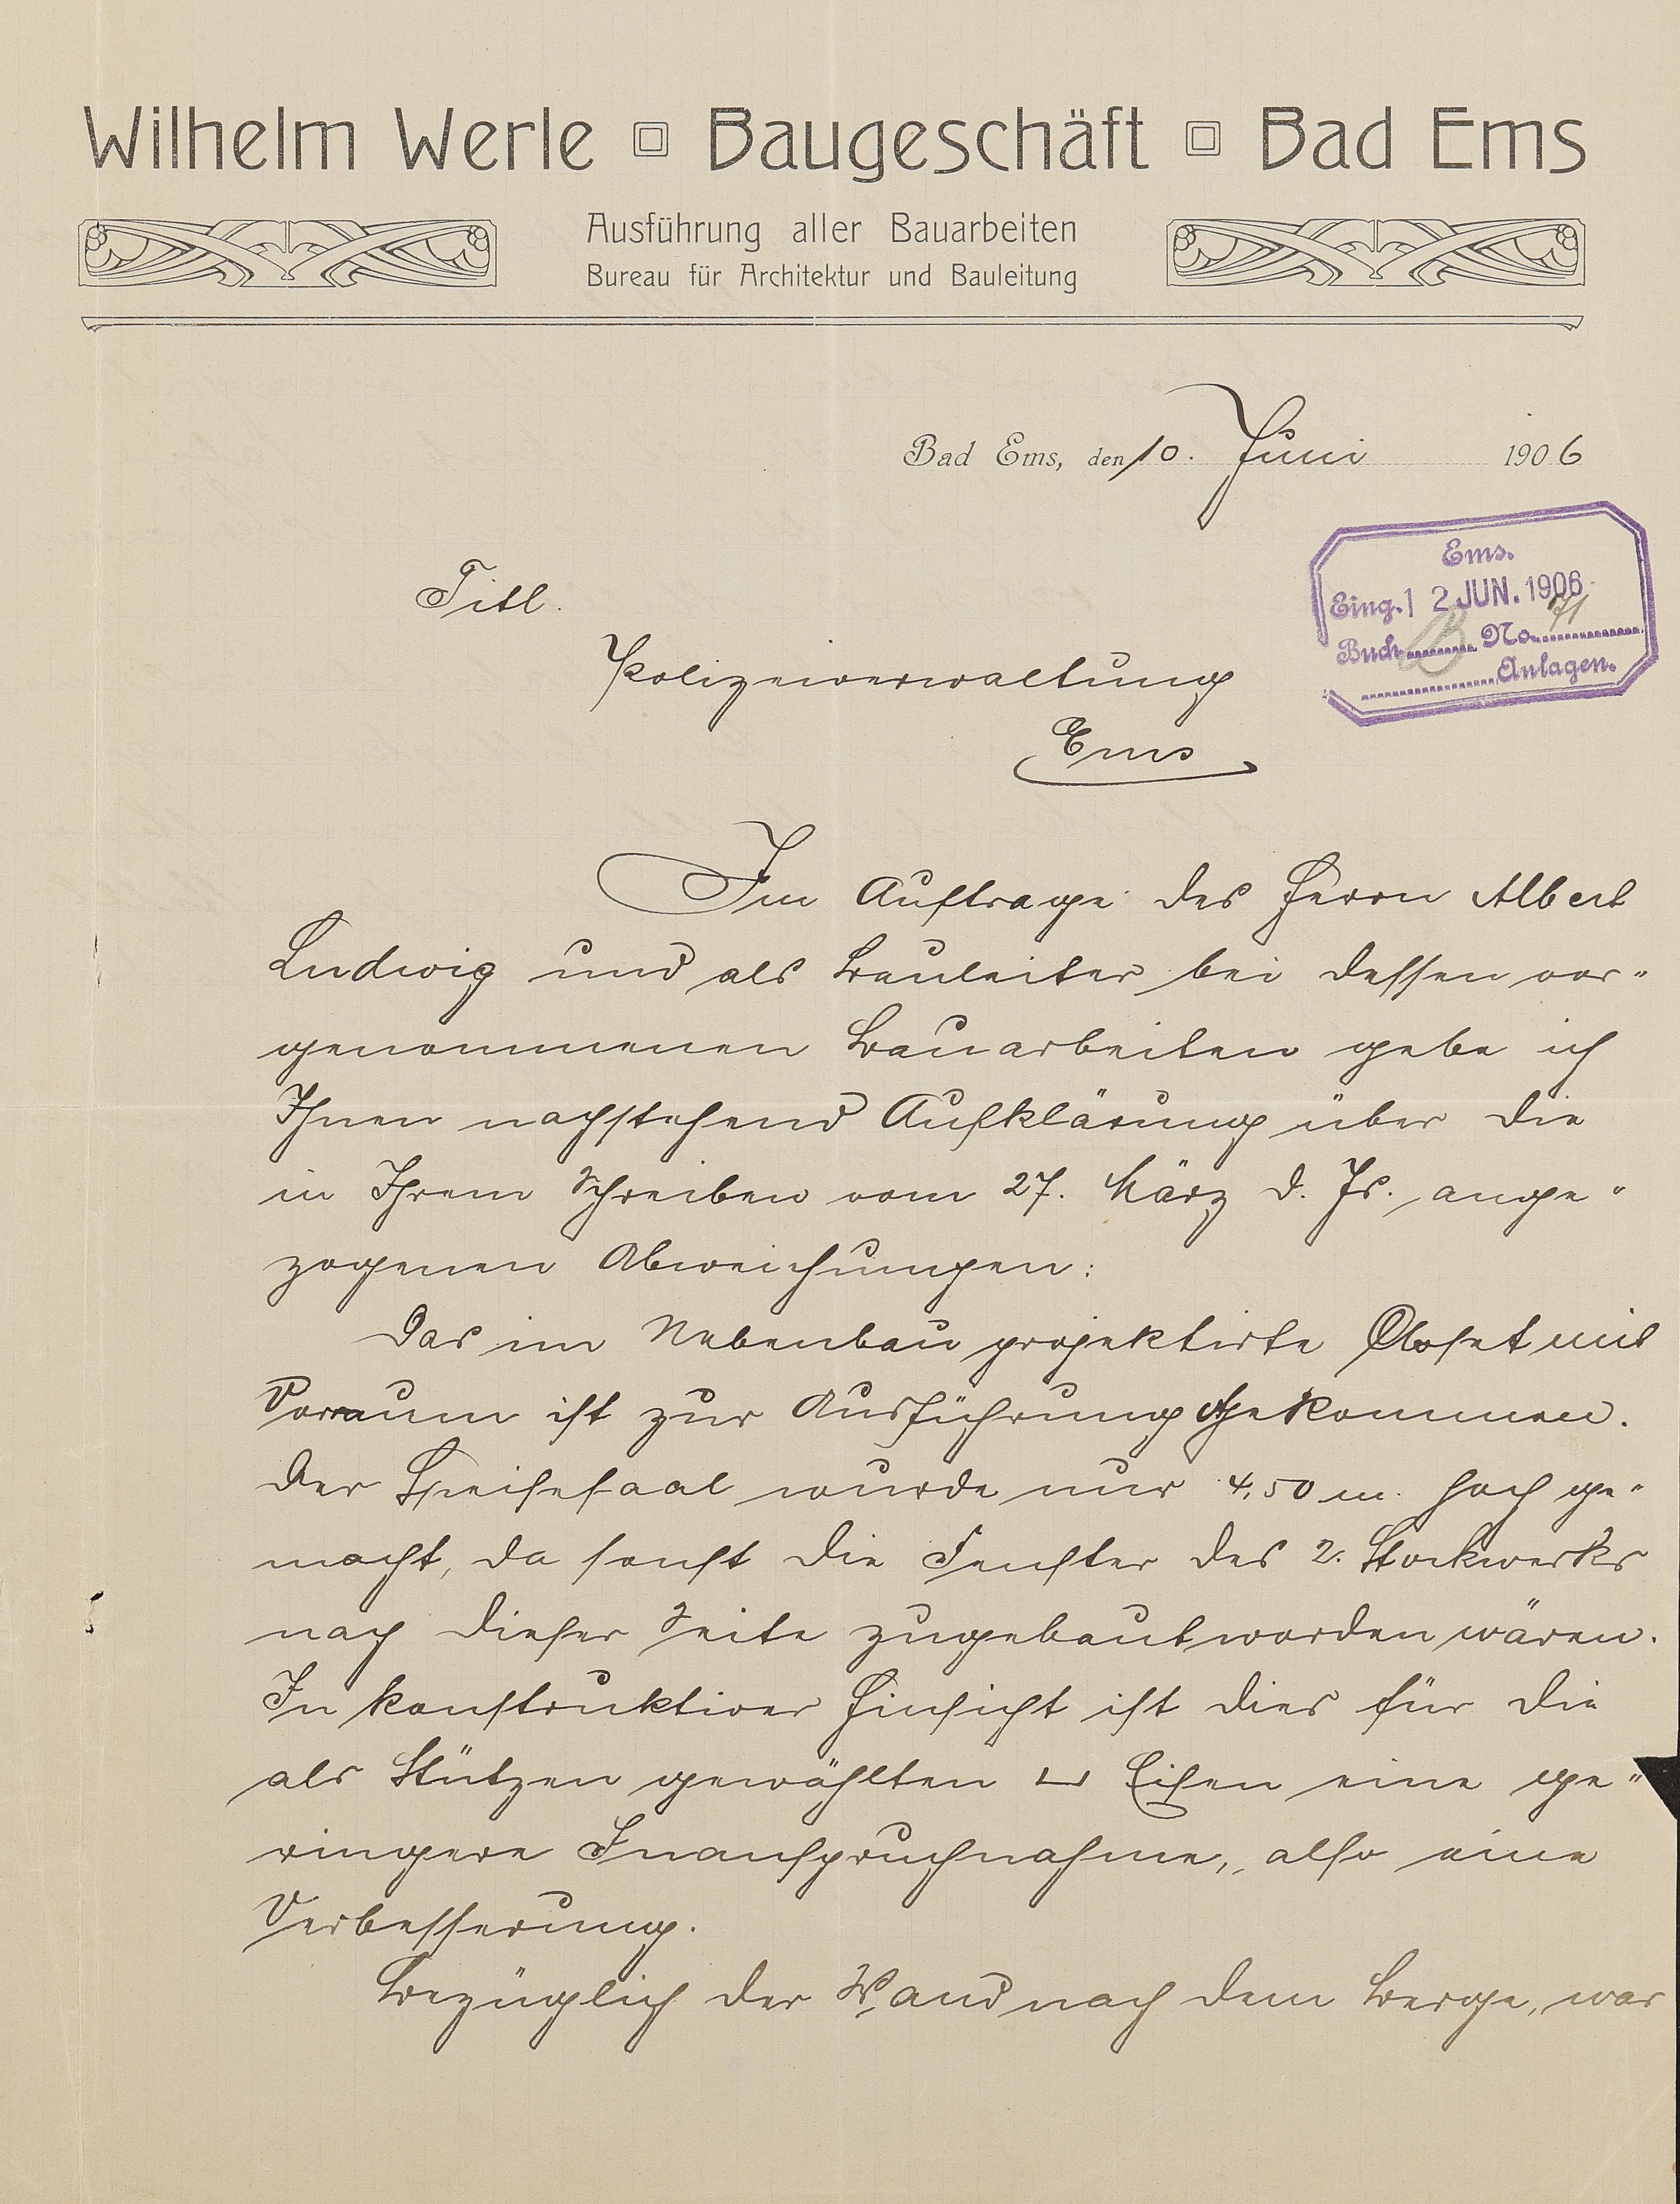 Wilhelm Werle Baugeschäft Bad Ems
Ausführung aller Bauarbeiten
Bureau für Architektur und Bauleitung
Bad Ems, den 10. Juni 1906
Ems.
Eing. 12 JUN. 1906
Buch B No 71
Anlagen.
Titl.
Polizeiverwaltung
Ems
Im Auftrage des Herrn Albert
Ludwig und als Bauleiter bei dessen vor-
genommenen Bauarbeiten gebe ich
Ihnen nachstehend Aufklärung über die
in Ihrem Schreiben vom 27. März d. Js. ange-
zogenen Abweichungen:
Das im Nebenbau projektirte Closet mit
Vorraum ist zur Ausführung gekommen.
Der Speisesaal wurde nur 4,50 m. hoch ge-
macht, da sonst die Fenster des 2. Stockwerks
nach dieser Seite zugebaut worden wären.
In konstruktiver Hinsicht ist dies für die
als Stützen gewählten ⊔ Eisen eine ge-
ringere Inanspruchnahme, also eine
Verbesserung.
Bezüglich der Wand nach dem Berge, war